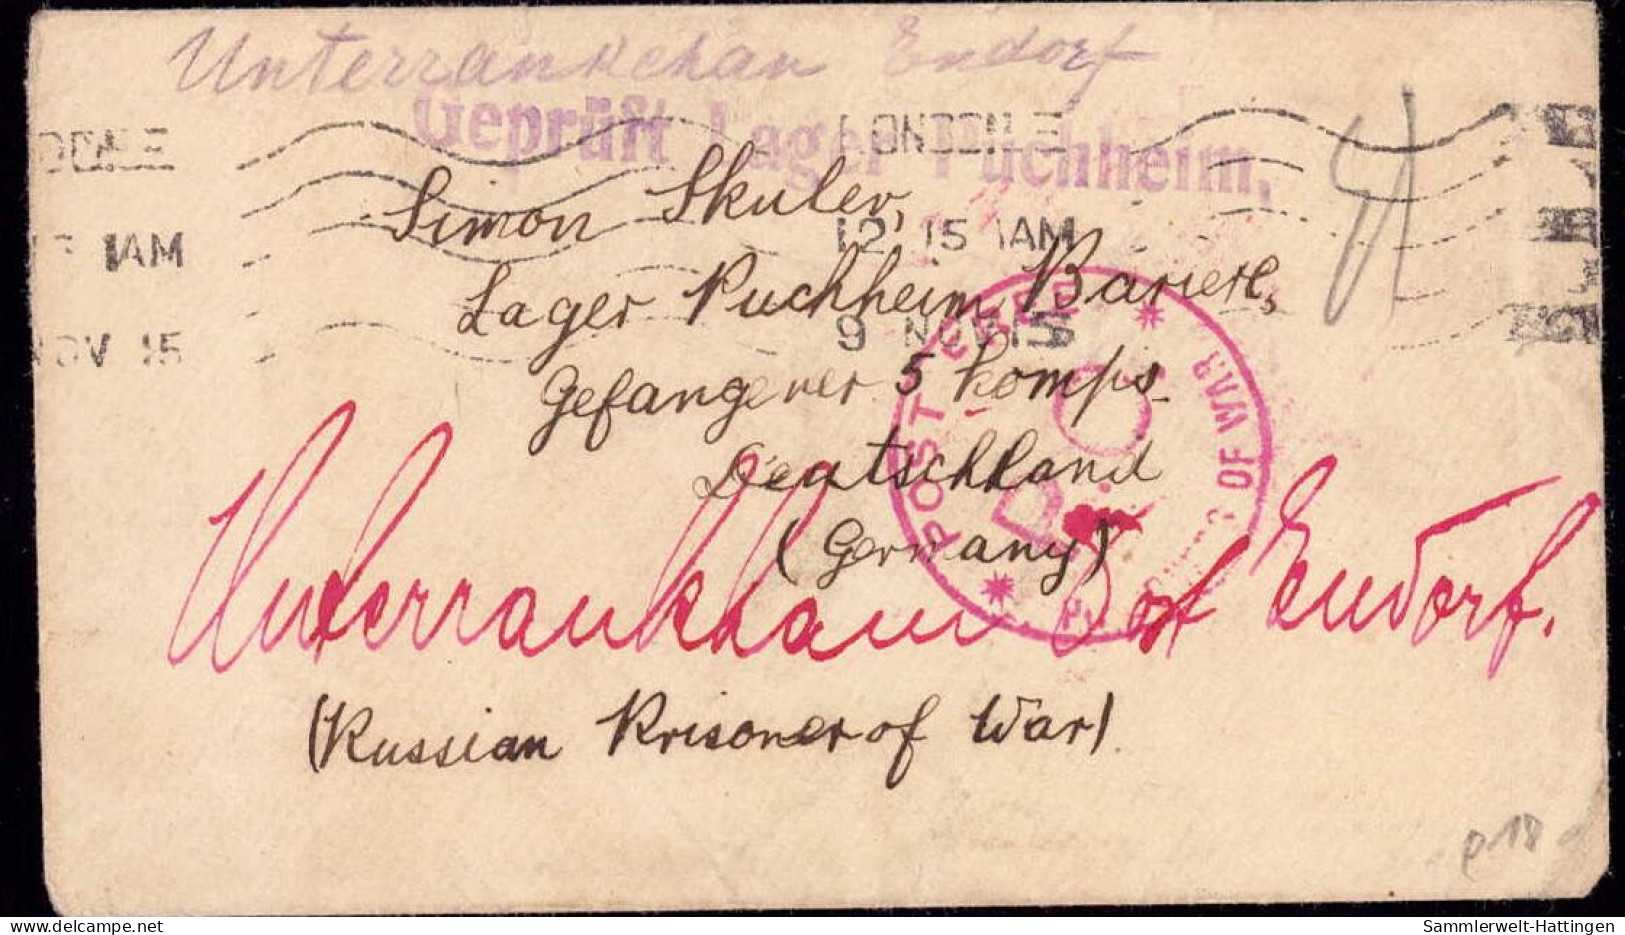 Unterrankehan Endorf
Geprüft Lager Puchheim.
LONDON.E
12.15 AM
9 NOV 15
1AM
NOV 15
Simon Skuler,
Lager Puchheim, Bariere,
Gefangener 5 Komps.
Deutschland
(Germany)
POST FREE
P.C.
OF WAR
Unterrankham Post Endorf.
(Russian Prisoner of War)
p18
Sammlerwelt-Hattingen